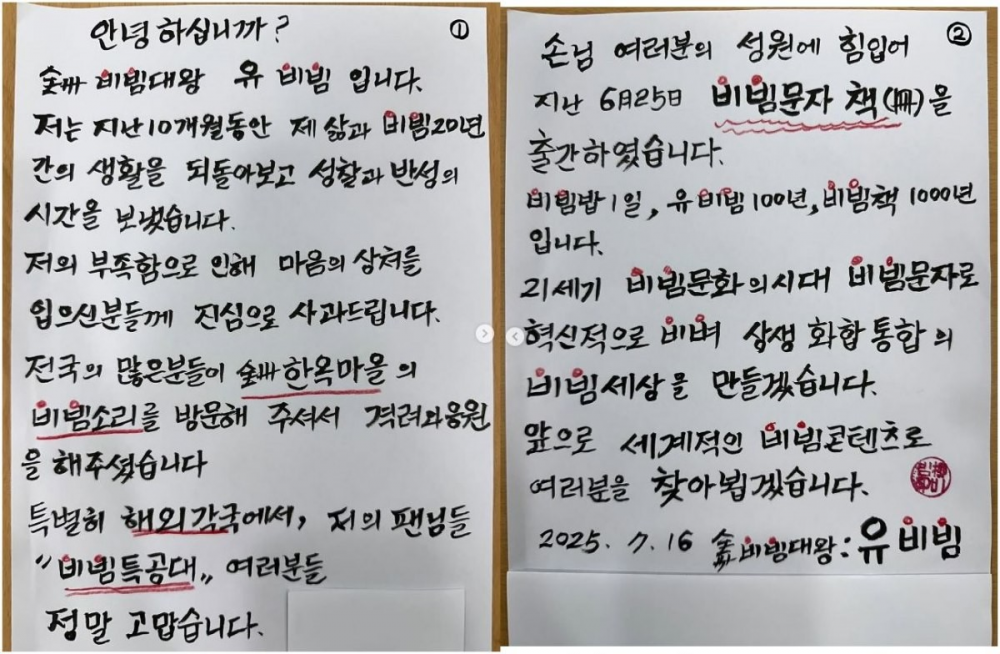 안녕하십니까?
①
全州 비빔대왕 유 비빔 입니다.
저는 지난 10개월동안 제 삶과 비빔20년
간의 생활을 되돌아보고 성찰과 반성의
시간을 보냈습니다.
저의 부족함으로 인해 마음의 상처를
입으신분들께 진심으로 사과드립니다.
전국의 많은분들이 全州한옥마을의
비빔소리를 방문해 주셔서 격려와응원
을 해주셨습니다
특별히 해외각국에서, 저의 팬님들
"비빔특공대" 여러분들
정말 고맙습니다.
②
손님 여러분의 성원에 힘입어
지난 6月25日 비빔문자 책(冊)을
출간하였습니다.
비빔밥 1일, 유비빔 100년, 비빔책 1000년
입니다.
21세기 비빔문화의시대 비빔문자로
혁신적으로 비벼 상생 화합 통합의
비빔세상을 만들겠습니다.
앞으로 세계적인 비빔콘텐츠로
여러분을 찾아뵙겠습니다.
2025. 7. 16 全州비빔대왕: 유 비빔